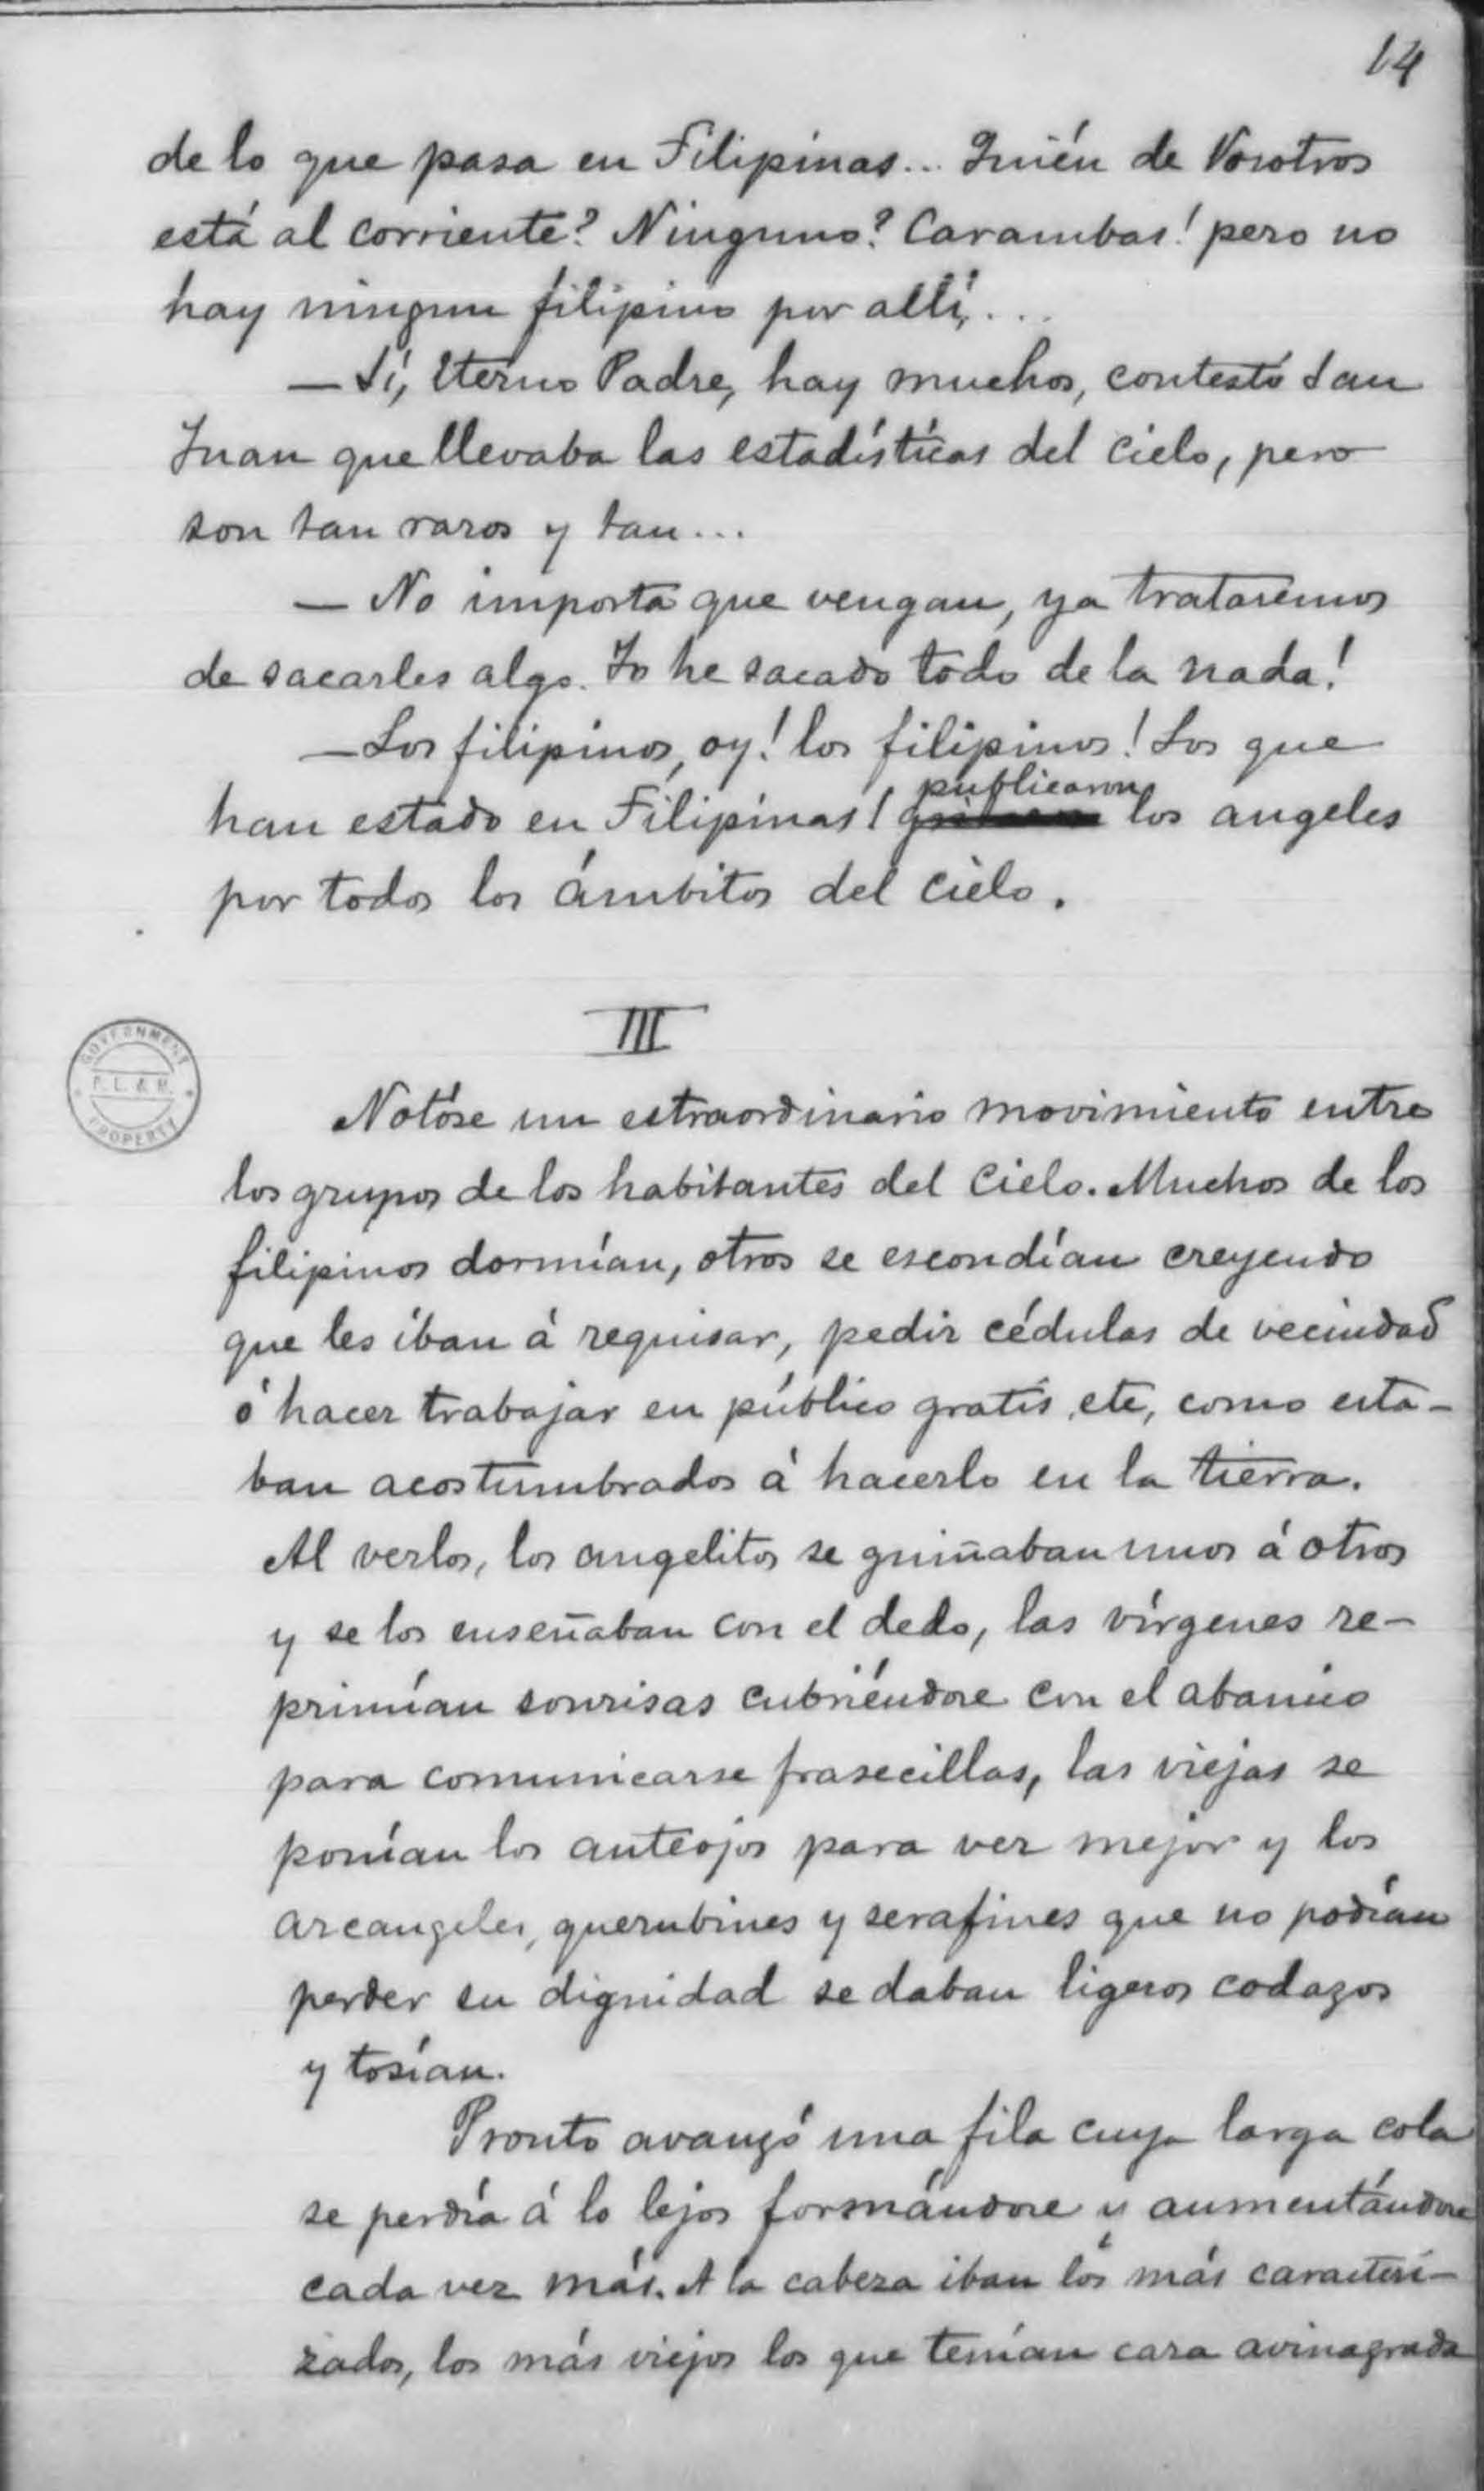 14
de lo que pasa en Filipinas... Quién de Vosotros
está al corriente? Ninguno? Carambas! pero no
hay ningun filipino por allí,...
— Sí, Eterno Padre, hay muchos, contestó San
Juan que llevaba las estadísticas del cielo, pero
son tan raros y tan...
— No importa que vengan, ya trataremos
de sacarles algo. Yo he sacado todo de la nada!
— Los filipinos, oy! los filipinos! Los que
publicaron
han estado en Filipinas! los angeles
por todos los ámbitos del cielo.
III
GOVERNMENT
P. L. & M.
PROPERTY
Notóse un estraordinario movimiento entre
los grupos de los habitantes del Cielo. Muchos de los
filipinos dormían, otros se escondían creyendo
que les iban á requisar, pedir cédulas de vecindad
ó hacer trabajar en público gratis, etc, como esta-
ban acostumbrados á hacerlo en la tierra.
Al verlos, los angelitos se guiñaban unos á otros
y se los enseñaban con el dedo, las vírgenes re-
primían sonrisas cubriéndose con el abanico
para comunicarse frasecillas, las viejas se
ponían los anteojos para ver mejor y los
arcangeles, querubines y serafines que no podían
perder su dignidad se daban ligeros codazos
y tosían.
Pronto avanzó una fila cuya larga cola
se perdía á lo lejos formándose y aumentándose
cada vez más. A la cabeza iban los más caracteri-
zados, los más viejos los que tenían cara avinagrada